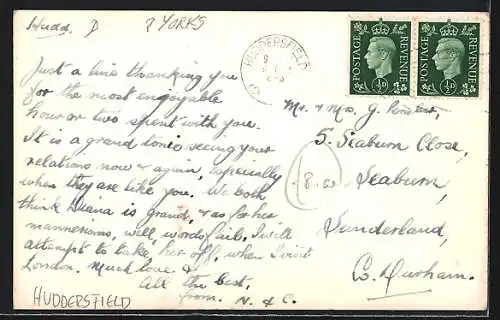 Hudd. D ? YORKS
HUDDERSFIELD
POSTAGE REVENUE ½D
POSTAGE REVENUE ½D
Just a line thanking you
for the most enjoyable
hour or two spent with you.
It is a grand tonic seeing your
relations now & again, especially
when they are like you. We both
think Diana is grand, & as for her
mannerisms, well, words fail. I will
attempt to take her off, when I visit
London. Much love &
All the best,
from N. & C.
Mr. & Mrs. G.
5. Seaburn Close,
Seaburn,
Sunderland,
Co. Durham.
HUDDERSFIELD